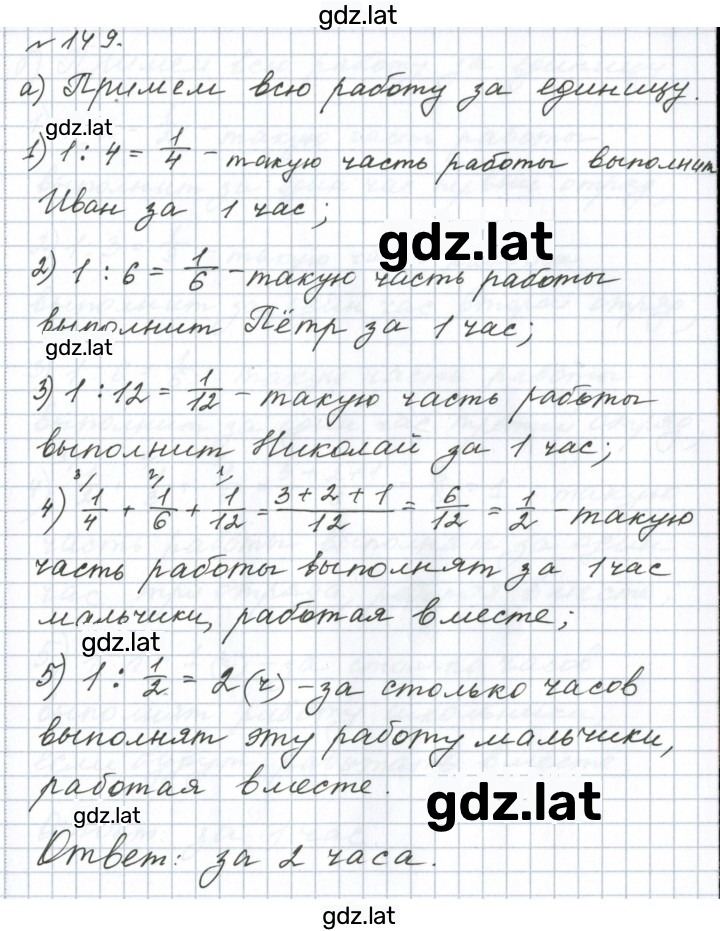 gdz.lat
№ 149.
а) Примем всю работу за единицу.
gdz.lat
1) 1 : 4 = 1/4 - такую часть работы выполнит
Иван за 1 час;
gdz.lat
2) 1 : 6 = 1/6 - такую часть работы
выполнит Пётр за 1 час;
gdz.lat
3) 1 : 12 = 1/12 - такую часть работы
выполнит Николай за 1 час;
4) 3/ 1/4 + 2/ 1/6 + 1/ 1/12 = (3+2+1)/12 = 6/12 = 1/2 - такую
часть работы выполнят за 1 час
мальчики, работая вместе;
gdz.lat
5) 1 : 1/2 = 2 (ч) - за столько часов
выполнят эту работу мальчики,
работая вместе.
gdz.lat
gdz.lat
Ответ: за 2 часа.
gdz.lat